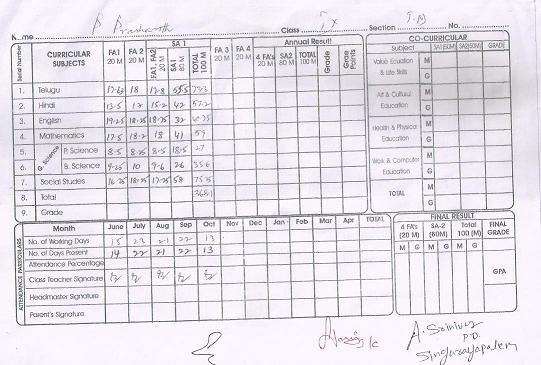 Name P. Prashanth Class IX Section T.M No.
Serial Number CURRICULAR SUBJECTS FA1 20 M FA 2 20 M SA 1 FA1, FA2 20 M SA1 80 M TOTAL 100 M FA 3 20 M FA 4 20 M Annual Result 4 FA's 20 M SA2 80 M TOTAL 100 M Grade Grae Points
1. Telugu 18 17-8
2. Hindi 13-5 17 15-2 42 57-2
3. English 19-25 18-75 18-75 32
4. Mathematics 17-5 18-2 18 41 59
G. Science
5. P. Science 8-5 8-75 8-5 18-5 27
6. B. Science 9-25 10 9-6 26 35-6
7. Social Studies 16-75 18-75 17-75 58 75-5
8. Total
9. Grade
CO-CURRICULAR
Subject SA1(50M) SA2(50M) GRADE
Value Eduation & Life Skills M G
Art & Cultural Education M G
Health & Physical Education M G
Work & Computer Education M G
TOTAL M G
ATTENDANCE PARTICULARS
Month June July Aug Sep Oct Nov Dec Jan Feb Mar Apr TOTAL
No. of Working Days 15 23 21 22 13
No. of Days Present 14 22 21 22 13
Attendance Percentage
Class Teacher Signature
Headmaster Signature
Parent's Signature
FINAL RESULT
4 FA's (20 M) SA-2 (80M) Total 100 (M) FINAL GRADE
M G M G M G
GPA
A. Srinivas
P.D.
Singarayapalem